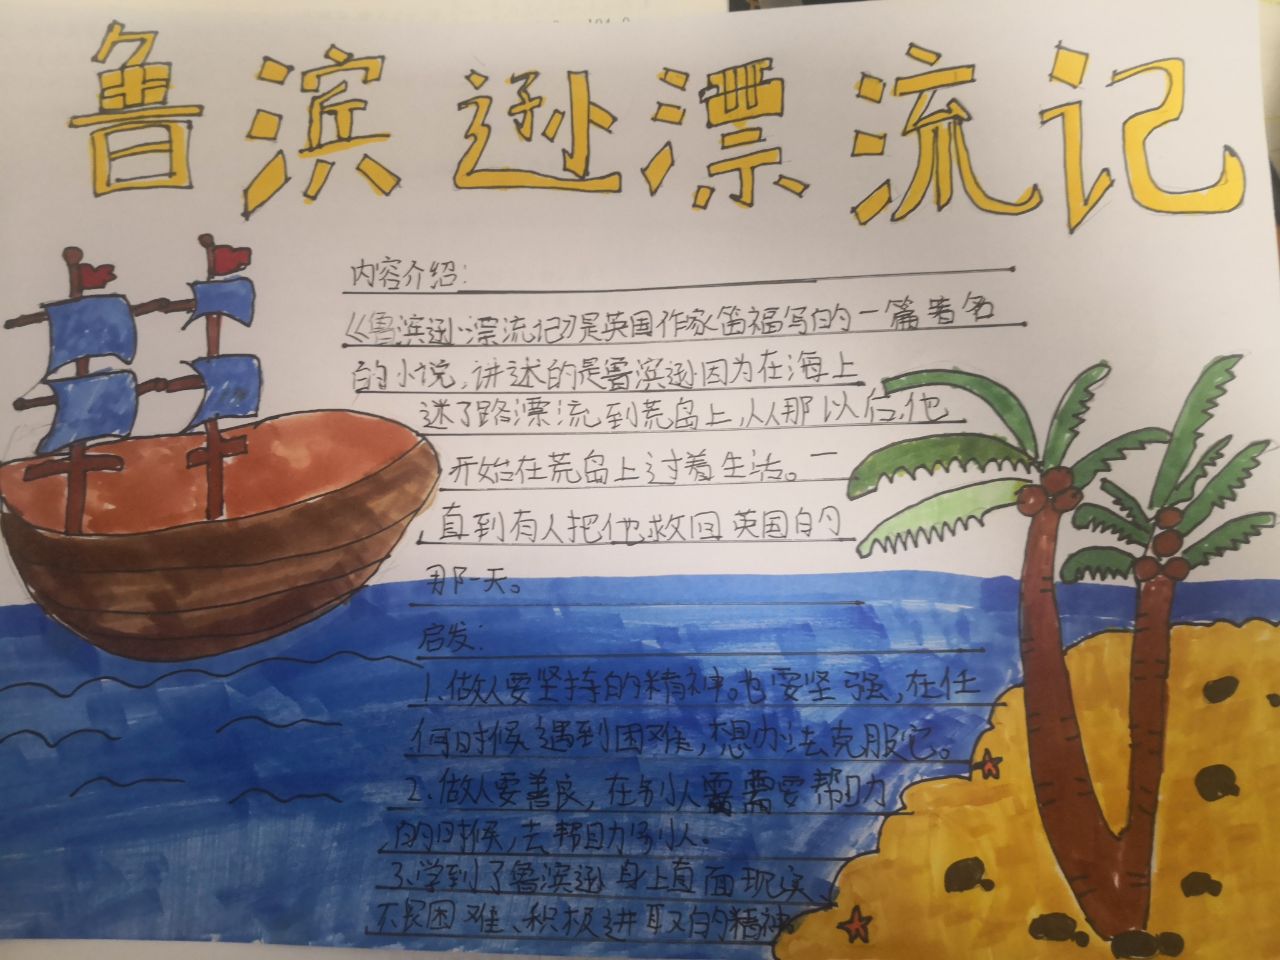 鲁滨逊漂流记
内容介绍：
《鲁滨逊漂流记》是英国作家笛福写的一篇著名
的小说，讲述的是鲁滨逊因为在海上
迷了路漂流到荒岛上，从那以后，他
开始在荒岛上过着生活。一
直到有人把他救回英国的
那一天。
启发：
1.做人要坚持的精神。也要坚强，在任
何时候遇到困难，想办法克服它。
2.做人要善良，在别人需要帮助
的时候，去帮助别人。
3.学到了鲁滨逊身上直面现实、
不畏困难、积极进取的精神。